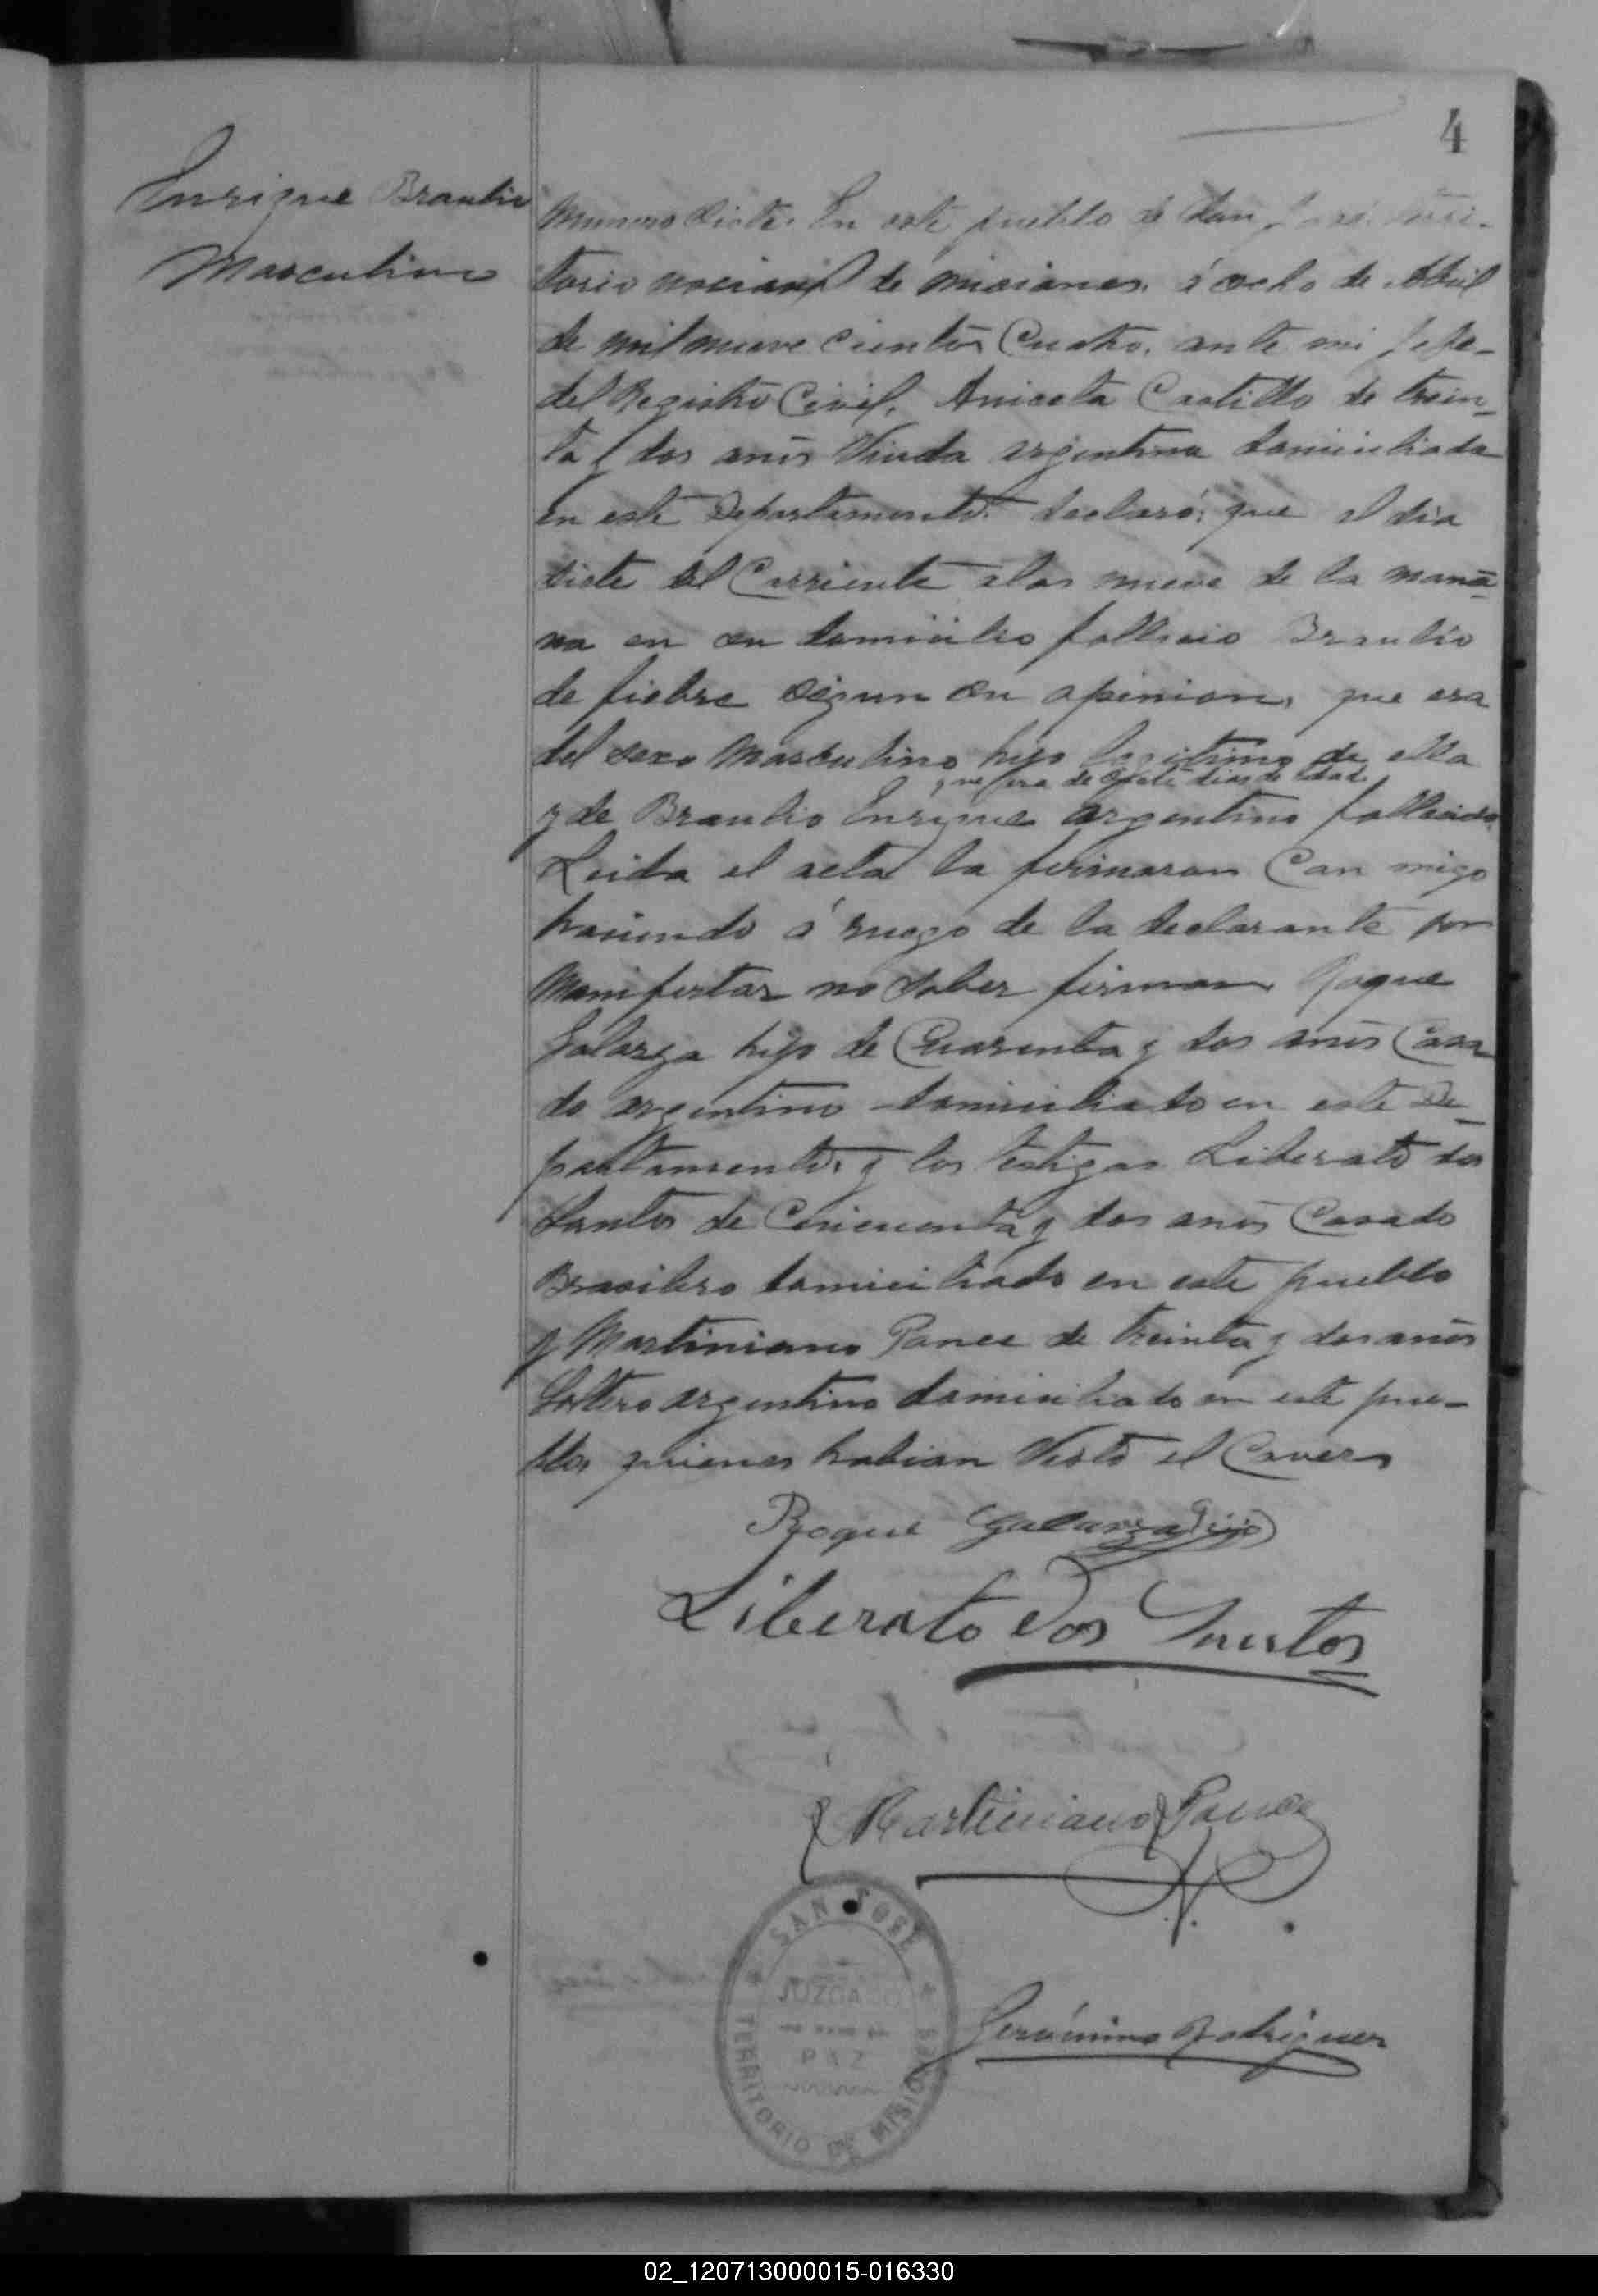 4
Enrique Braulio
Masculino
Numero Siete. En este pueblo de San José terri-
torio nacional de misiones, á ocho de Abril
de mil nueve cientos Cuatro, ante mi Jefe-
del Registro Civil, Aniceta Castillo de trein-
ta y dos anõs Viuda argentina domiciliada
en este Departamento declaró: que el dia
siete del Corriente a las nueve de la maña
na en su domicilio fallecio Braulio
de fiebre segun su opinion, que era
del sexo Masculino hijo legitimo de ella
que era de siete dias de edad
y de Braulio Enrique argentino fallecido
Leida el acta la firmaron Con migo
haciendo á ruego de la declarante por
Manifestar no saber firmar Roque
Galarza hijo de Cuarenta y dos anõs Casa
do argentino domiciliado en este De-
partamento, y los testigos Liberato dos
Santos de Cincuenta y dos anõs Casado
Brasilero domiciliado en este pueblo
y Martiniano Ponce de treinta y dos anõs
Soltero argentino domiciliado en este pue-
blo, quienes habian Visto el
Roque Galarza (hijo)
Liberato Dos Santos
Martiniano Ponce
Gerónimo Rodriguez
SAN JOSE
JUZGADO
PAZ
TERRITORIO DE MISIONES
02_120713000015-016330